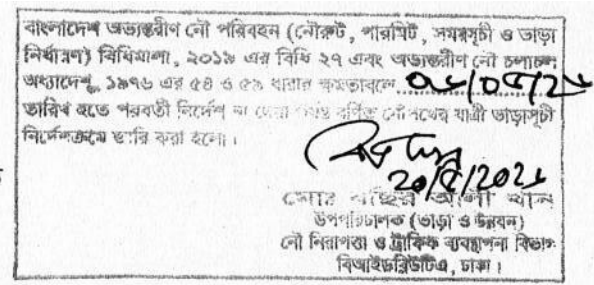 বাংলাদেশ অভ্যন্তরীণ নৌ পরিবহন (নৌরুট, পারমিট, সময়সূচী ও ভাড়া
নির্ধারণ) বিধিমালা, ২০১৯ এর বিধি ২৭ এবং অভ্যন্তরীণ নৌ চলাচল
অধ্যাদেশ, ১৯৭৬ এর ৫৪ ও ৫৯ ধারার ক্ষমতাবলে
তারিখ হতে পরবর্তী নির্দেশ না দেয়া পর্যন্ত বর্ণিত নৌপথের যাত্রী ভাড়াসূচী
নির্দেশক্রমে জারি করা হলো।
মোঃ আলী খান
উপপরিচালক (ভাড়া ও উন্নয়ন)
নৌ নিরাপত্তা ও ট্রাফিক ব্যবস্থাপনা বিভাগ
বিআইডব্লিউটিএ, ঢাকা।